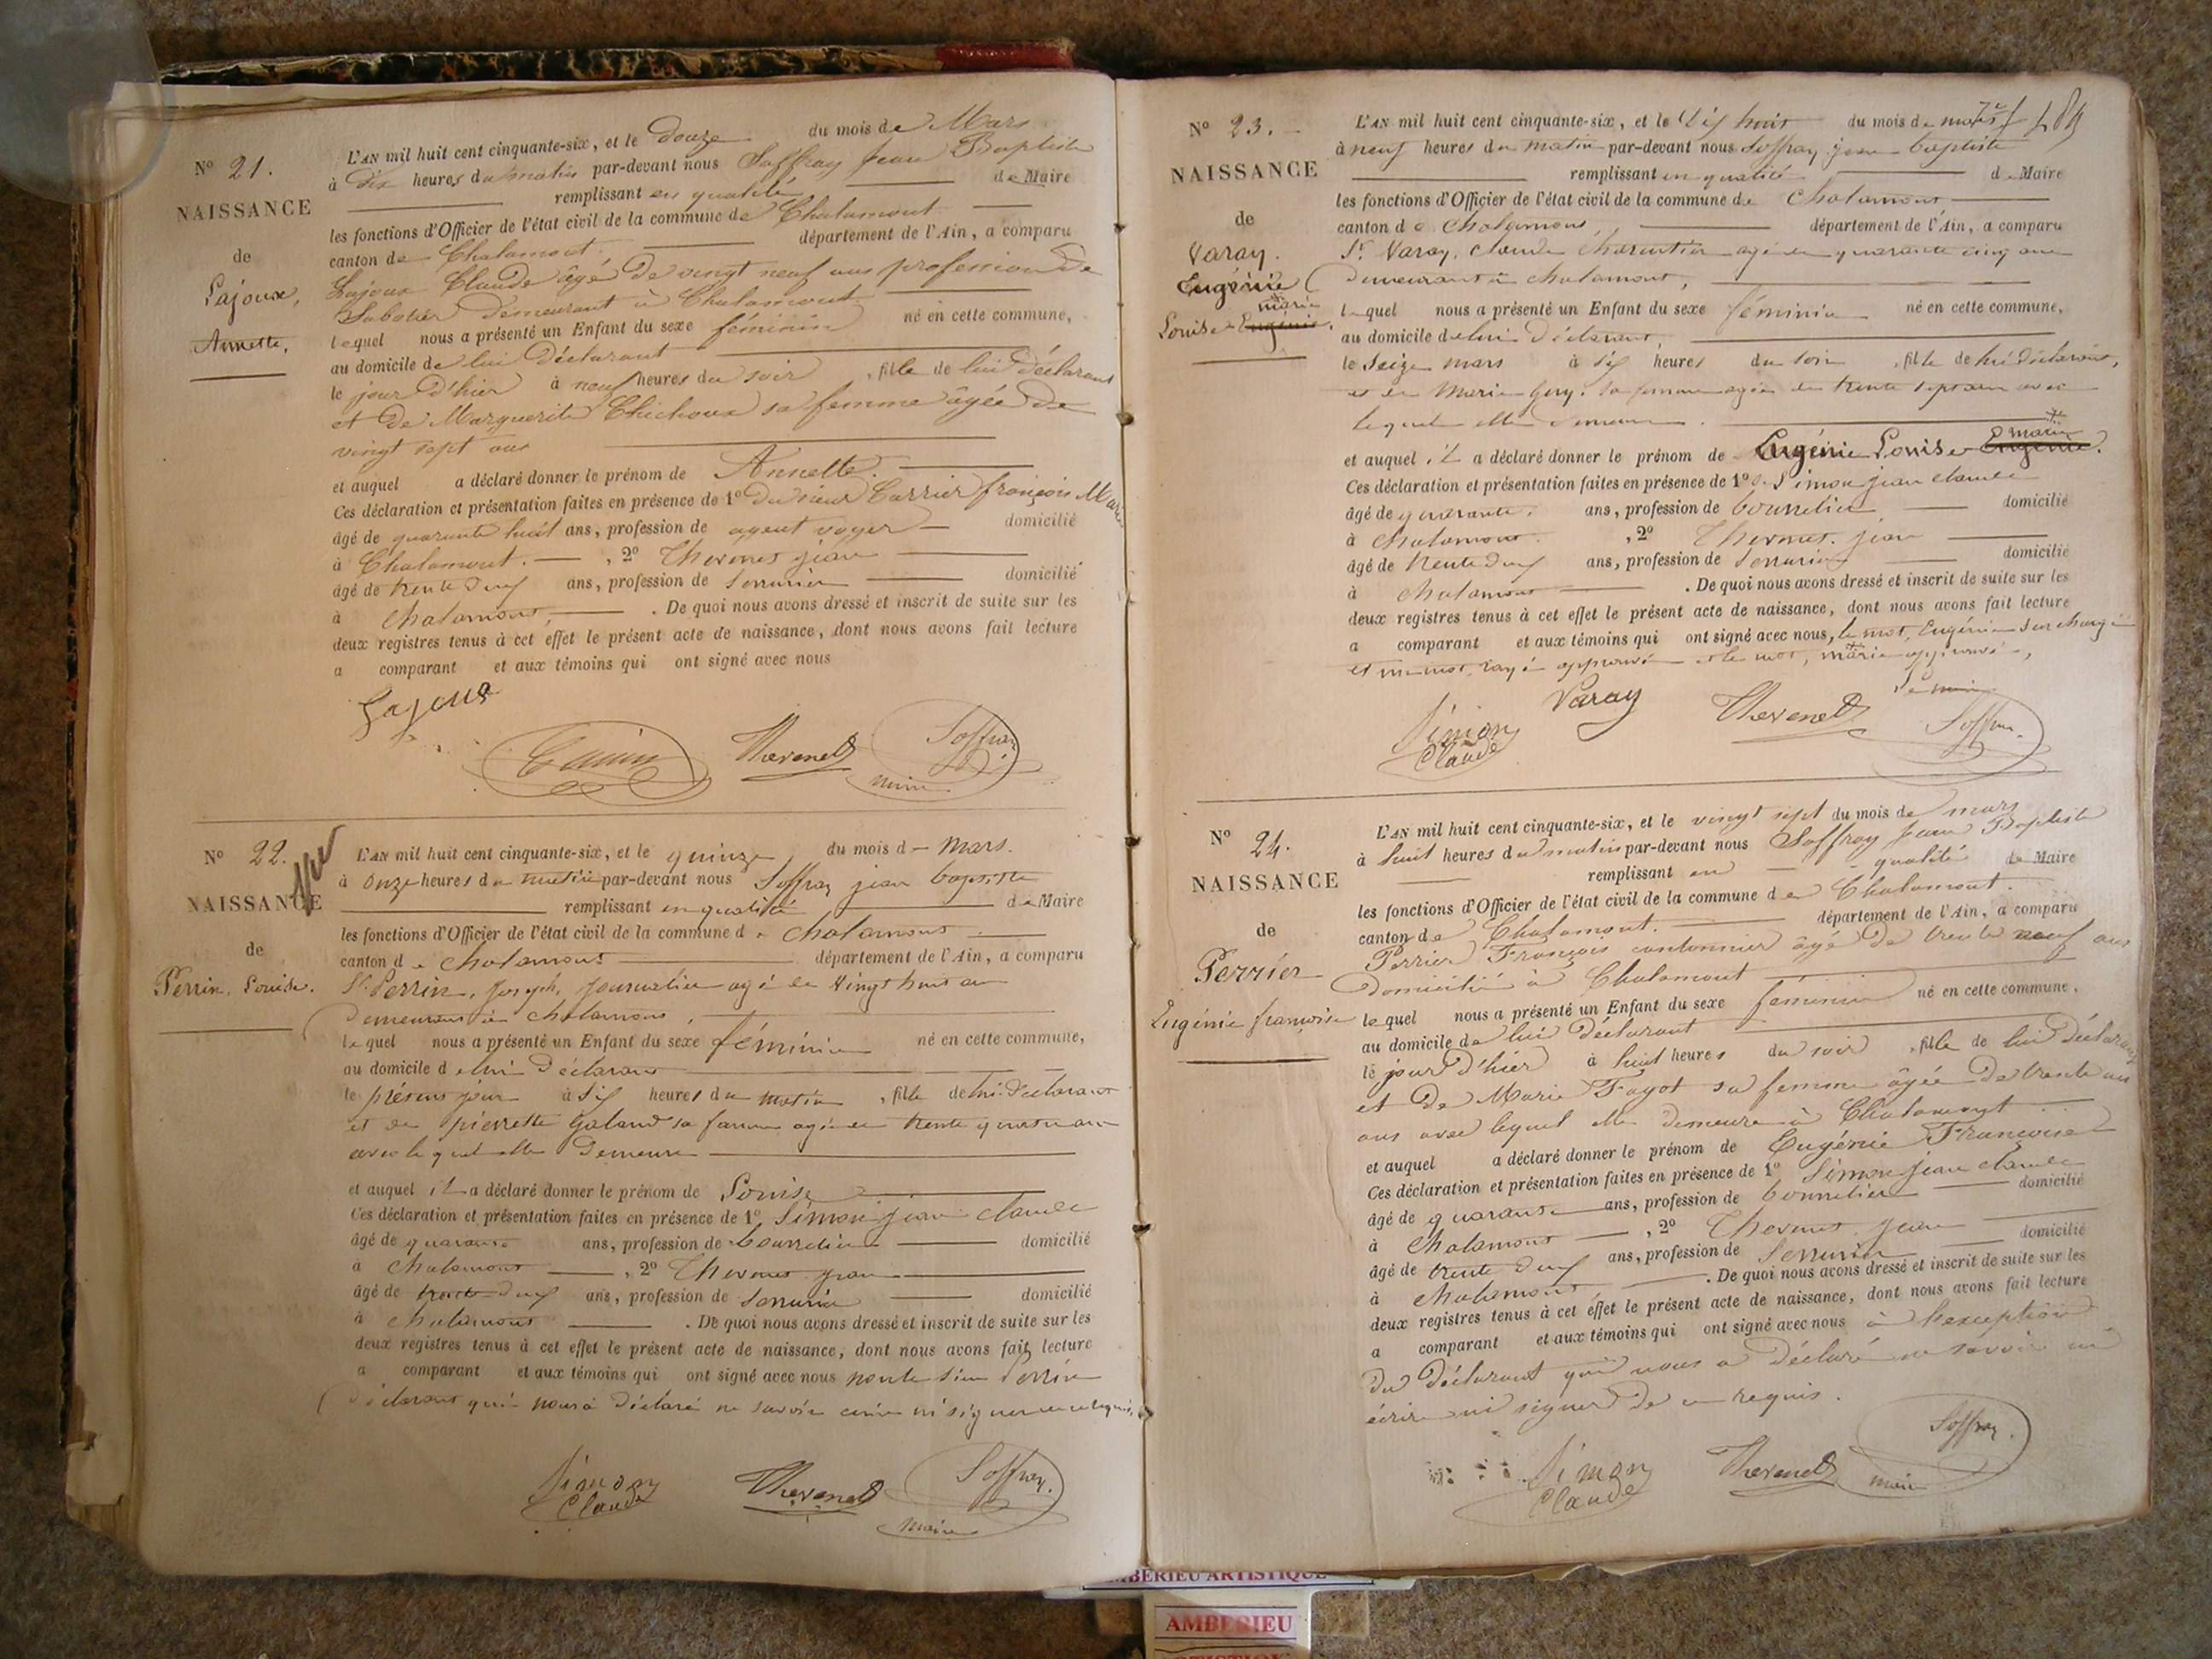 N° 21.
NAISSANCE
de
Lajoux,
Annette,
L'AN mil huit cent cinquante-six, et le douze du mois de Mars
à dix heures du matin par-devant nous Soffray Jean Baptiste
remplissant en qualité de Maire
les fonctions d'Officier de l'état civil de la commune de Chalamont
canton de Chalamont. département de l'Ain, a comparu
Lajoux Claude âgé de vingt neuf ans profession de
Sabotier demeurant à Chalamont
lequel nous a présenté un Enfant du sexe féminin né en cette commune,
au domicile de lui déclarant
le jour d'hier à neuf heures du soir, fille de lui déclarant
et de Marguerite Chichoux sa femme âgée de
vingt sept ans
et auquel a déclaré donner le prénom de Annette.
Ces déclaration et présentation faites en présence de 1° du sieur Carrier françois Marie
âgé de quarante huit ans, profession de agent voyer domicilié
à Chalamont. , 2° Thevenet jean
âgé de trente deux ans, profession de Serrurier domicilié
à chalamont, . De quoi nous avons dressé et inscrit de suite sur les
deux registres tenus à cet effet le présent acte de naissance, dont nous avons fait lecture
a comparant et aux témoins qui ont signé avec nous
Lajoux
Thevenet
Soffray
maire
N° 22.
NAISSANCE
de
Perrin, Louise.
L'AN mil huit cent cinquante-six, et le quinze du mois de Mars.
à onze heures du matin par-devant nous Soffray jean baptiste
remplissant en qualité de Maire
les fonctions d'Officier de l'état civil de la commune de chalamont
canton de chalamont département de l'Ain, a comparu
Sr Perrin, joseph, journalier agé de vingt huit an
demeurant à chalamont,
lequel nous a présenté un Enfant du sexe féminin né en cette commune,
au domicile de lui déclarant
le présent jour à six heures du matin, fille de lui déclarant
et de pierrette Galand sa femme agée de trente quatre ans
avec lequel elle demeure
et auquel il a déclaré donner le prénom de Louise
Ces déclaration et présentation faites en présence de 1° Simon jean claude
âgé de quarante ans, profession de bourrelier domicilié
à chalamont , 2° Thevenet jean
âgé de trente deux ans, profession de Serrurier domicilié
à chalamont . De quoi nous avons dressé et inscrit de suite sur les
deux registres tenus à cet effet le présent acte de naissance, dont nous avons fait lecture
a comparant et aux témoins qui ont signé avec nous non le sieur Perrin
déclarant qui nous à déclaré ne savoir écrire ni signer de ce requis.
Simon
Claude
Thevenet
Soffray.
maire
N° 23.
NAISSANCE
de
Varay.
Eugénie
marie
Louise Eugénie.
L'AN mil huit cent cinquante-six, et le dix huit du mois de mars
à neuf heures du matin par-devant nous Soffray jean baptiste
remplissant en qualité de Maire
les fonctions d'Officier de l'état civil de la commune de Chalamont
canton de Chalamont, département de l'Ain, a comparu
Sr Varay, claude charpentier agé de quarante cinq ans
demeurant à chalamont,
lequel nous a présenté un Enfant du sexe féminin né en cette commune,
au domicile de lui déclarant,
le Seize mars à six heures du soir, fille de lui déclarant,
et de Marie Guy. sa femme agée de trente sept ans avec
lequel elle demeure.
marie
et auquel il a déclaré donner le prénom de Eugénie Louise Eugénie.
Ces déclaration et présentation faites en présence de 1° Simon jean claude
âgé de quarante. ans, profession de bourrelier domicilié
à chalamont. , 2° Thevenet. jean
âgé de trente deux ans, profession de Serrurier domicilié
à chalamont . De quoi nous avons dressé et inscrit de suite sur les
deux registres tenus à cet effet le présent acte de naissance, dont nous avons fait lecture
a comparant et aux témoins qui ont signé avec nous, le mot, Eugénie Surchargé
et un mot rayé approuvé et le mot, marie approuvé,
Simon
Claude
Varay
Thevenet
Le maire
Soffray.
N° 24.
NAISSANCE
de
Perrier
Eugénie françoise
L'AN mil huit cent cinquante-six, et le vingt sept du mois de mars
à huit heures du matin par-devant nous Soffray Jean Baptiste
remplissant en qualité de Maire
les fonctions d'Officier de l'état civil de la commune de Chalamont.
canton de Chalamont. département de l'Ain, a comparu
Perrier François cantonnier âgé de trente neuf ans
domicilié à Chalamont
lequel nous a présenté un Enfant du sexe féminin né en cette commune,
au domicile de lui déclarant
le jour d'hier à huit heures du soir, fille de lui déclarant
et de Marie Fayot sa femme âgée de trente un
ans avec lequel elle demeure à Chalamont
et auquel a déclaré donner le prénom de Eugénie Françoise
Ces déclaration et présentation faites en présence de 1° Simon jean claude
âgé de quarante ans, profession de bourrelier domicilié
à Chalamont , 2° Thevenet jean
âgé de trente deux ans, profession de Serrurier domicilié
à chalamont, . De quoi nous avons dressé et inscrit de suite sur les
deux registres tenus à cet effet le présent acte de naissance, dont nous avons fait lecture
a comparant et aux témoins qui ont signé avec nous à l'exception
du déclarant qui nous a déclaré ne savoir ni
écrire ni signer de ce requis.
Simon
Claude
Thevenet
Soffray.
maire
AMBERIEU ARTISTIQUE
AMBERIEU